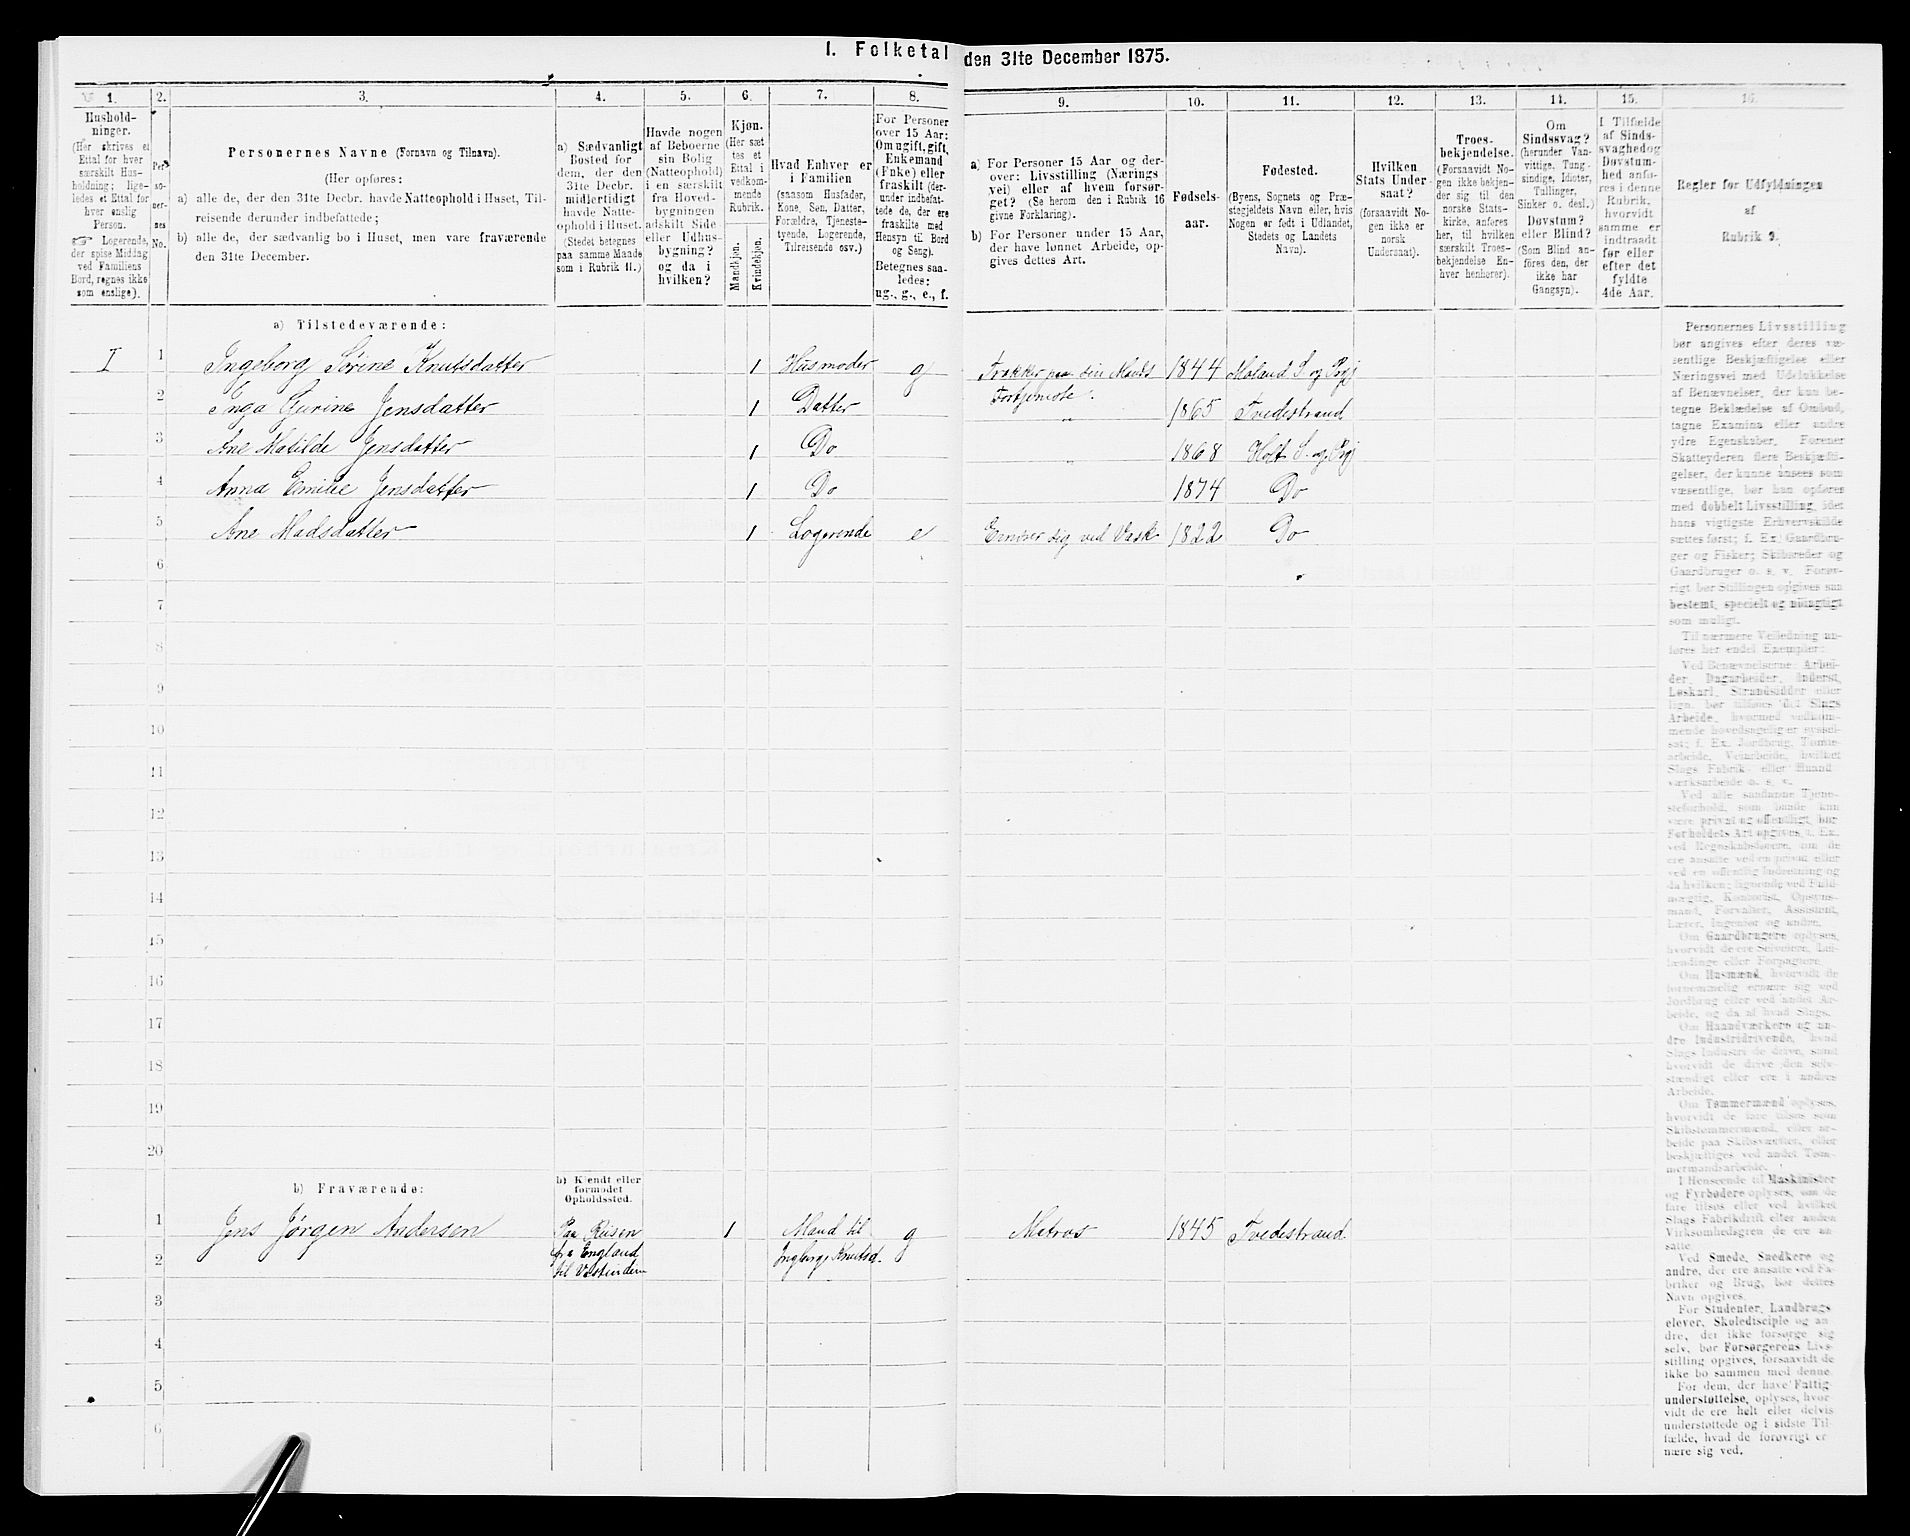 I. Folketal den 31te December 1875.
1. 2. 3. 4. 5. 6. 7. 8. 9. 10. 11. 12. 13. 14. 15. 16.
Hushold-
ninger.
(Her skrives et
Ettal for hver
særskilt Hus-
holdning; lige-
ledes et Ettal for
hver enslig
Person.
☞ Logerende,
der spise Middag
ved Familiens
Bord, regnes ikke
som enslige).
Per-
so-
ner-
nes
No.
Personernes Navne (Fornavn og Tilnavn).
(Her opføres:
a) alle de, der den 31te Decbr. havde Natteophold i Huset, Til-
reisende derunder indbefattede;
b) alle de, der sædvanlig bo i Huset, men vare fraværende
den 31te December.
a) Sædvanligt
Bosted for
dem, der den
31te Decbr.
midlertidigt
havde Natte-
ophold i Huset.
(Stedet betegnes
paa samme Maade
som i Rubrik 11.)
Havde nogen
af Beboerne
sin Bolig
(Natteophold)
i en særskilt
fra Hoved-
bygningen
adskilt Side-
eller Udhus-
bygning?
og da i
hvilken?
Kjøn.
(Her sæt-
tes et
Ettal i
vedkom-
mende
Rubrik.
Mandkjøn.
Kvindekjøn.
Hvad Enhver er
i Familien
(saasom Husfader,
Kone, Søn, Datter,
Forældre, Tjeneste-
tyende, Logerende,
Tilreisende osv.)
For Personer
over 15 Aar:
Om ugift, gift,
Enkemand
(Enke) eller
fraskilt (der-
under indbefat-
tede de, der ere
fraskilte med
Hensyn til Bord
og Seng).
Betegnes saa-
ledes:
ug., g., e., f.
a) For Personer 15 Aar og der-
over: Livsstilling (Nærings-
vei) eller af hvem forsør-
get? (Se herom den i Rubrik 16
givne Forklaring).
b) For Personer under 15 Aar,
der have lønnet Arbeide, op-
gives dettes Art.
Fødsels-
aar.
Fødested.
(Byens, Sognets og Præ-
stegjeldets Navn eller, hvis
Nogen er født i Udlandet,
Stedets og Landets
Navn).
Hvilken
Stats Under-
saat?
(forsaavidt No-
gen ikke er
norsk
Undersaat).
Troes-
bekjendelse.
(Forsaavidt No-
gen ikke bekjen-
der sig til den
norske Stats-
kirke, anføres
her, til hvilken
særskilt Troes-
bekjendelse En-
hver henhører).
Om
Sindssvag?
(herunder Van-
vittige, Tung-
sindige, Idioter,
Tullinger,
Sinker o. desl.)
Døvstum?
eller Blind?
(Som Blind an-
føres den, der
ikke har
Gangsyn).
I Tilfælde
af Sinds-
svaghed og
Døvstum-
hed anfø-
res i denne
Rubrik,
hvorvidt
samme er
indtraadt
før eller
efter det
fyldte
4de Aar.
Regler for Udfyldningen
af
Rubrik 9.
a) Tilstedeværende:
I 1 Ingeborg Sørine Knutsdatter 1 Husmoder g Trækker paa sin Mands 1844 Moland S. og Pgj
Fortjeneste.
2 Inga Gurine Jensdatter 1 Datter " 1865 Tvedestrand
3 Ane Matilde Jensdatter 1 Do " 1868 Holt S. og Pgj
4 Anna Emilie Jensdatter 1 Do 1874 Do
5 Ane Madsdatter 1 Logerende e Ernærer sig ved Vask 1822 Do
6
7
8
9
10
11
12
13
14
15
16
17
18
19
20
b) Fraværende:
b) Kjendt eller
formodet
Opholdssted.
1 Jens Jørgen Andersen Paa Reisen 1 Mand til g Matros 1845 Tvedestrand
2 fra England Ingborg Knutsd.
til Vestindien
3
4
5
6
Personernes Livsstilling
bør angives efter deres væ-
sentlige Beskjæftigelse eller
Næringsvei med Udelukkelse
af Benævnelser, der kun be-
tegne Beklædelse af Ombud,
tagne Examina eller andre
ydre Egenskaber. Forener
Skatteyderen flere Beskjæfti-
gelser, der kunne ansees som
væsentlige, bør han opføres
med dobbelt Livsstilling, idet
hans vigtigste Erhvervskilde
sættes først; f. Ex. Gaardbru-
ger og Fisker; Skibsreder og
Gaardbruger o. s. v. Forøv-
rigt bør Stillingen opgives saa
bestemt, specielt og nøiagtigt
som muligt.
Til nærmere Veiledning an-
føres her endel Exempler:
Ved Benævnelserne: Arbei-
der, Dagarbeider, Inderst,
Løskarl, Strandsidder eller
lign. bør tilføies det Slags
Arbeide, hvormed vedkom-
mende hovedsagelig er syssel-
sat; f. Ex. Jordbrug, Tømte-
arbeide, Veiarbeide, hvilket
Slags Fabrik- eller Haand-
værksarbeide o. s. v.
Ved alle saadanne Tjene-
steforhold, som baade kan
være privat og offentligt, bør
Forholdets Art opgives, f. Ex.
ved Regnskabsførere, om de
ere ansatte ved en privat eller
ved en offentlig Indretning og
da hvilken; lignende ved Fuld-
mægtig, Kontorist, Opsyns-
mand, Forvalter, Assistent,
Lærer, Ingeniør og andre.
Om Gaardbrugere oplyses,
hvorvidt de ere Selveiere, Lei-
lændinge eller Forpagtere.
Om Husmænd, hvorvidt de
fornemmelig ernære sig ved
Jordbrug eller ved andet Ar-
beide, og da af hvad Slags.
Om Haandværkere og an-
dre Industridrivende, hvad
Slags Industri de drive, samt
hvorvidt de drive den selv-
stændigt eller ere i andres
Arbeide.
Om Tømmermænd oplyses,
hvorvidt de fare tilsøs som
Skibstømmermænd, eller ar-
beide paa Skibsværfter, eller
beskjæftiges ved andet Tøm-
mermandsarbeide.
I Henseende til Maskinister
og Fyrbødere oplyses, om de
fare tilsøs eller ved hvilket
Slags Fabrikdrift eller anden
Virksomhedsgren de ere an-
satte.
Ved Smede, Snedkere og
andre, der ere ansatte ved Fa-
briker og Brug, bør dettes
Navn opgives.
For Studenter, Landbrugs-
elever, Skoledisciple og an-
dre, der ikke forsørge sig
selv, bør Forsørgerens Livs-
stilling opgives, forsaavidt de
ikke bo sammen med denne.
For dem, der have Fattig-
understøttelse, oplyses, hvor-
vidt de ere helt eller delvis
understøttede og i sidste Til-
fælde, hvad de forøvrigt er-
nære sig ved.